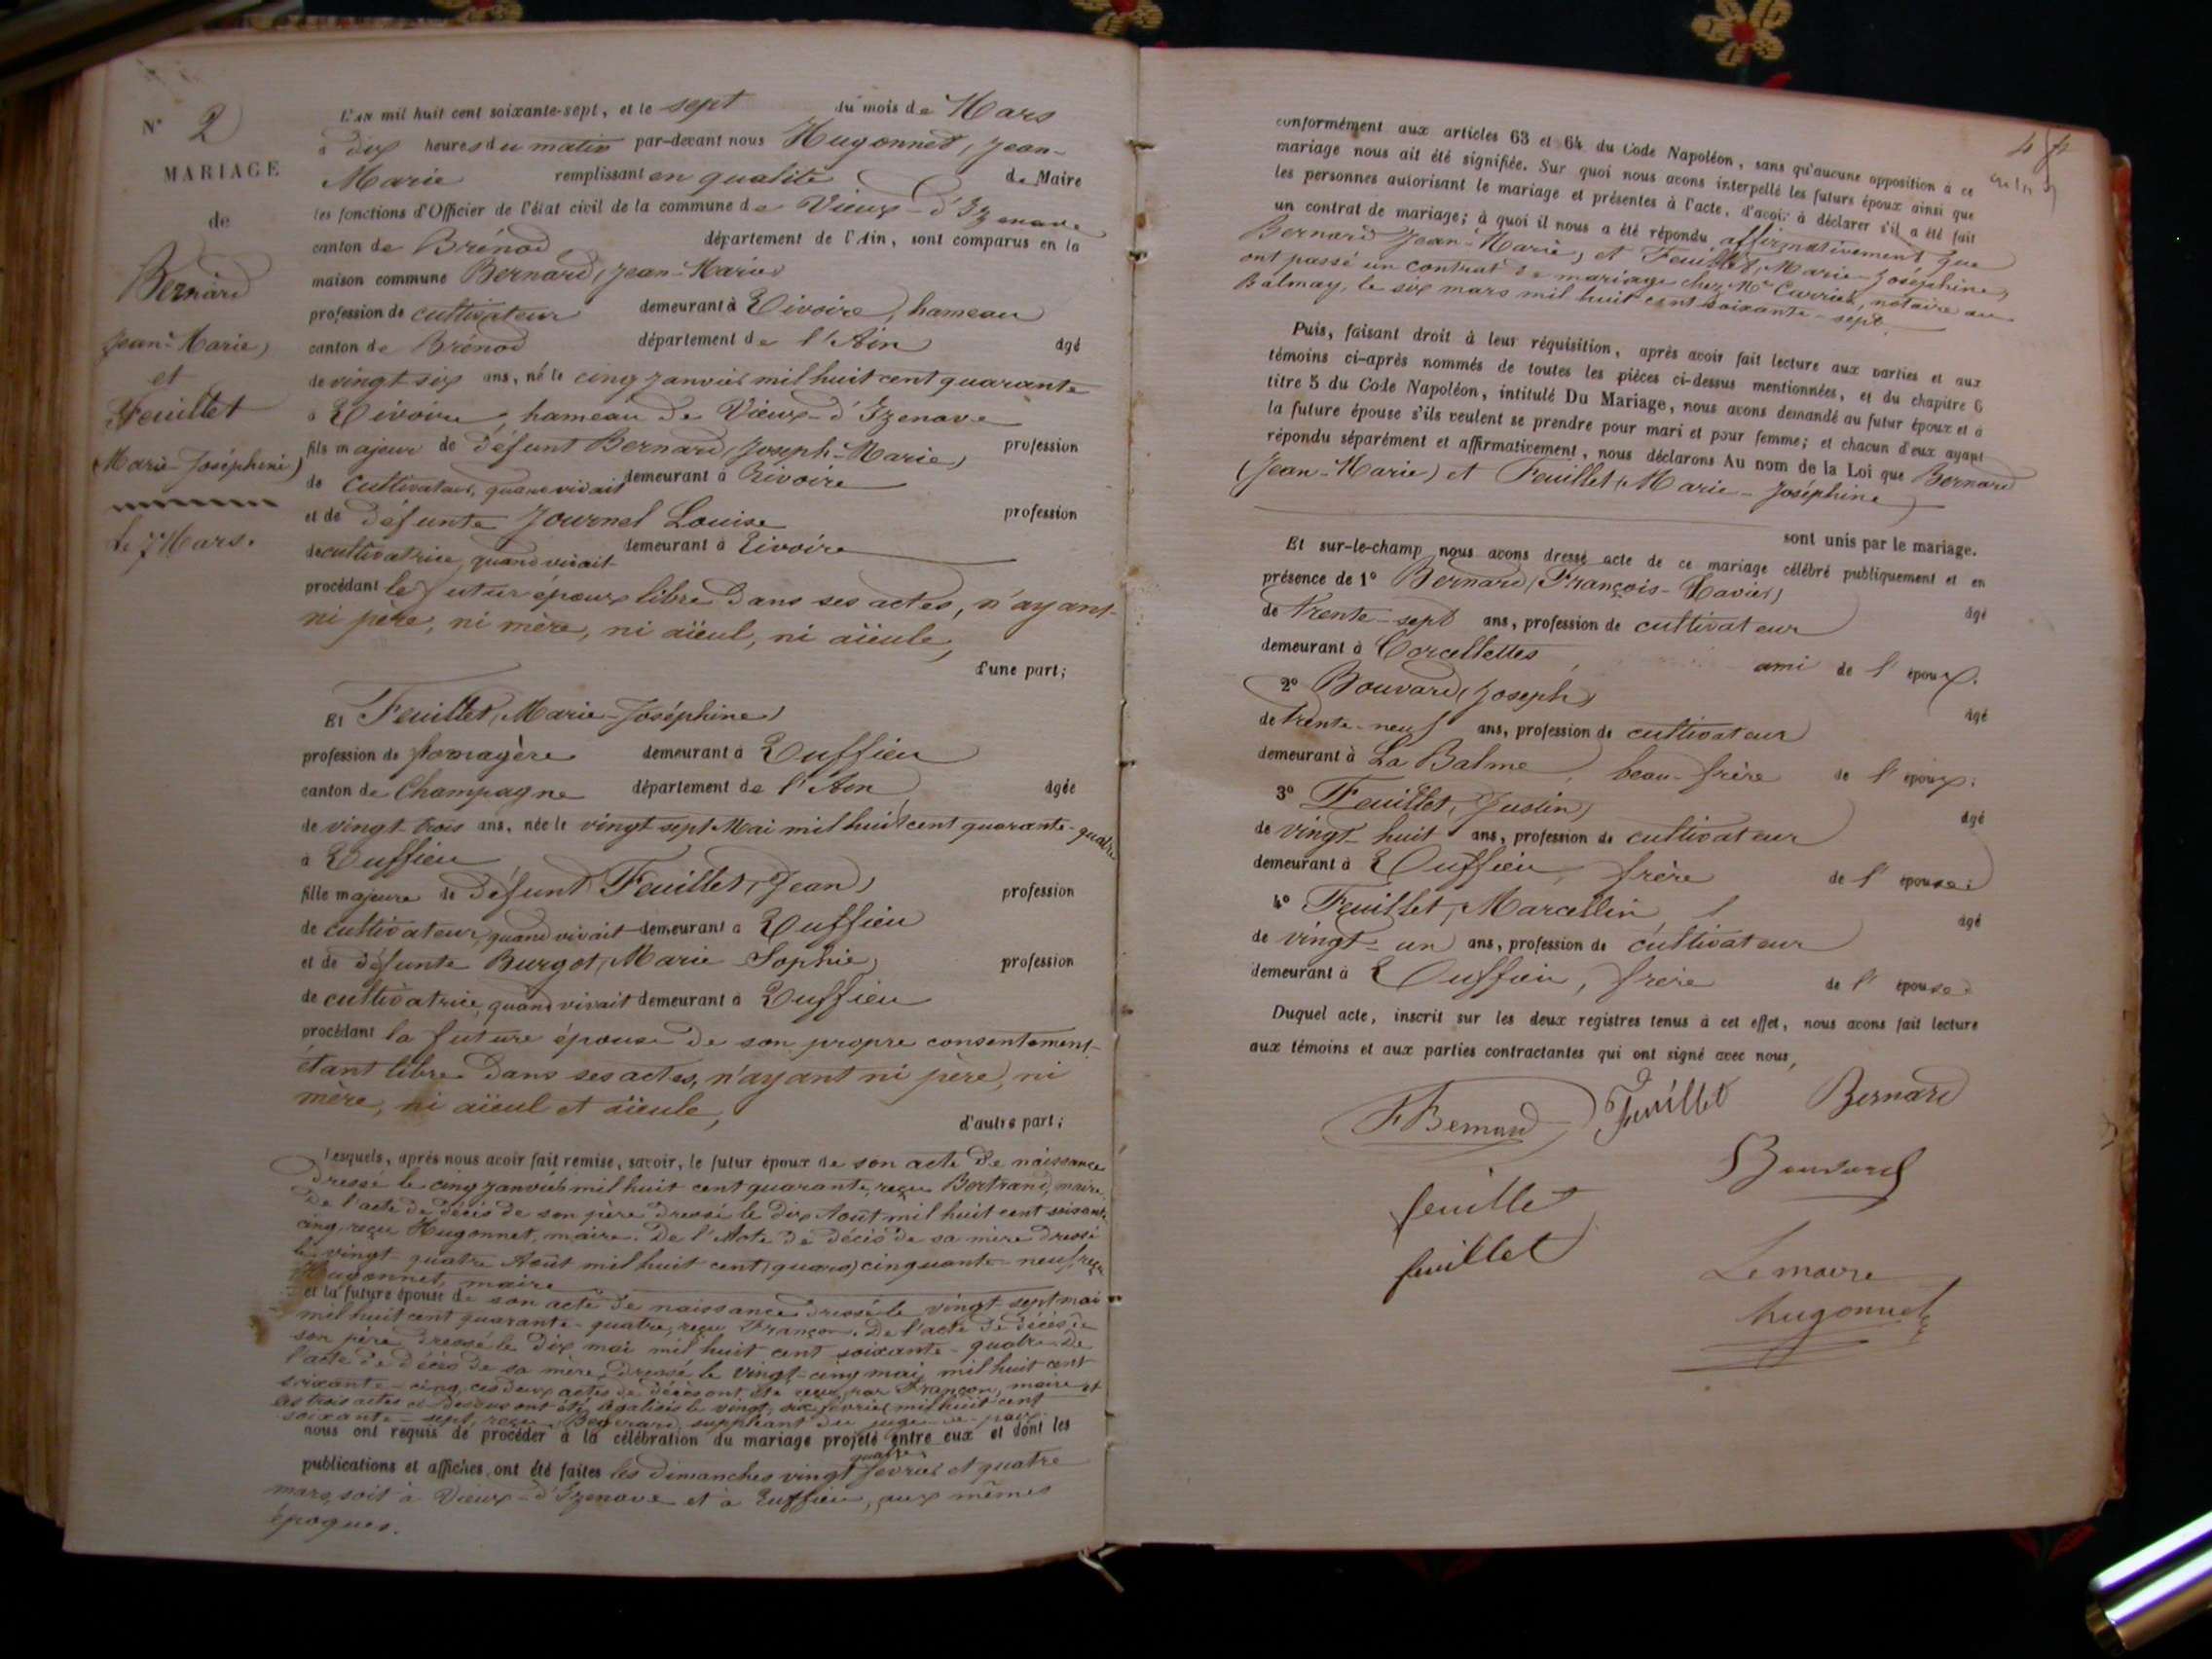 N° 2
MARIAGE
de
Bernard
Jean-Marie,
et
Feuillet
(Marie-Joséphine)
Le 7 Mars.
L'AN mil huit cent soixante-sept, et le sept du mois de Mars
à dix heures du matin par-devant nous Hugonnet, Jean-
Marie remplissant en qualité de Maire
les fonctions d'Officier de l'état civil de la commune de Vieux-d'Izenave
canton de Brénod département de l'Ain, sont comparus en la
maison commune Bernard (Jean-Marie)
profession de cultivateur demeurant à Rivoire, hameau
canton de Brénod département de l'Ain âgé
de vingt six ans, né le cinq janvier mil huit cent quarante
à Rivoire hameau de Vieux-d'Izenave
fils majeur de défunt Bernard (Joseph-Marie) profession
de cultivateur, quand vivait demeurant à Rivoire
et de défunte Journel Louise profession
de cultivatrice quand vivait demeurant à Rivoire
procédant le futur époux libre dans ses actes, n'ayant
ni père, ni mère, ni aïeul, ni aïeule,
d'une part;
Et Feuillet (Marie-Joséphine)
profession de fromagère demeurant à Ruffieu
canton de Champagne département de l'Ain âgée
de vingt-trois ans, née le vingt sept Mai mil huit cent quarante-quatre
à Ruffieu
fille majeure de défunt Feuillet (Jean) profession
de cultivateur, quand vivait demeurant à Ruffieu
et de défunte Burgot (Marie Sophie) profession
de cultivatrice, quand vivait demeurant à Ruffieu
procédant la future épouse de son propre consentement
étant libre dans ses actes, n'ayant ni père, ni
mère, ni aïeul et aïeule,
d'autre part;
Lesquels, après nous avoir fait remise, savoir, le futur époux de son acte de naissance
dressé le cinq janvier mil huit cent quarante, reçu Bertrand, maire,
De l'acte de décès de son père dressé le dix Août mil huit cent soixante
cinq, reçu Hugonnet, maire. De l'Acte de décès de sa mère dressé
le vingt-quatre Août mil huit cent (quara) cinquante-neuf, reçu
Hugonnet, maire
et la future épouse de son acte de naissance dressé le vingt-sept mai
mil huit cent quarante-quatre, reçu Françon. De l'acte de décès de
son père dressé le dix mai mil huit cent soixante-quatre. De
l'acte de décès de sa mère dressé le vingt-cinq mai mil huit cent
soixante-cinq, ces deux actes de décès ont été reçus par Françon, maire et
les trois actes ci-dessus ont été légalisés le vingt-six février mil huit cent
soixante-sept, reçu suppléant du juge-de-paix.
nous ont requis de procéder à la célébration du mariage projeté entre eux et dont les
publications et affiches ont été faites les dimanches vingt quatre février et quatre
mars, soit à Vieux-d'Izenave et à Ruffieu, aux mêmes
époques.
conformément aux articles 63 et 64 du Code Napoléon, sans qu'aucune opposition à ce
mariage nous ait été signifiée. Sur quoi nous avons interpellé les futurs époux ainsi que
les personnes autorisant le mariage et présentes à l'acte, d'avoir à déclarer s'il a été fait
un contrat de mariage; à quoi il nous a été répondu affirmativement que
Bernard Jean-Marie, et Feuillet, Marie-Joséphine,
ont passé un contrat de mariage chez Me Carrier, notaire au
Balmay, le six mars mil huit cent soixante-sept.
Puis, faisant droit à leur réquisition, après avoir fait lecture aux parties et aux
témoins ci-après nommés de toutes les pièces ci-dessus mentionnées, et du chapitre 6
titre 5 du Code Napoléon, intitulé Du Mariage, nous avons demandé au futur époux et à
la future épouse s'ils veulent se prendre pour mari et pour femme; et chacun d'eux ayant
répondu séparément et affirmativement, nous déclarons Au nom de la Loi que Bernard
(Jean-Marie) et Feuillet (Marie-Joséphine)
sont unis par le mariage.
Et sur-le-champ nous avons dressé acte de ce mariage célébré publiquement et en
présence de 1° Bernard (François-Xavier) âgé
de trente-sept ans, profession de cultivateur
demeurant à Corcellettes, ami de l'époux.
2° Bouvard (Joseph) âgé
de trente-neuf ans, profession de cultivateur
demeurant à La Balme, beau-frère de l'époux.
3° Feuillet, Justin) âgé
de vingt-huit ans, profession de cultivateur
demeurant à Ruffieu, frère de l'épouse.
4° Feuillet, Marcellin, âgé
de vingt-un ans, profession de cultivateur
demeurant à Ruffieu, frère de l'épouse.
Duquel acte, inscrit sur les deux registres tenus à cet effet, nous avons fait lecture
aux témoins et aux parties contractantes qui ont signé avec nous,
F Bernard Feuillet Bernard
Bouvard
feuillet
feuillet
Le maire
hugonnet